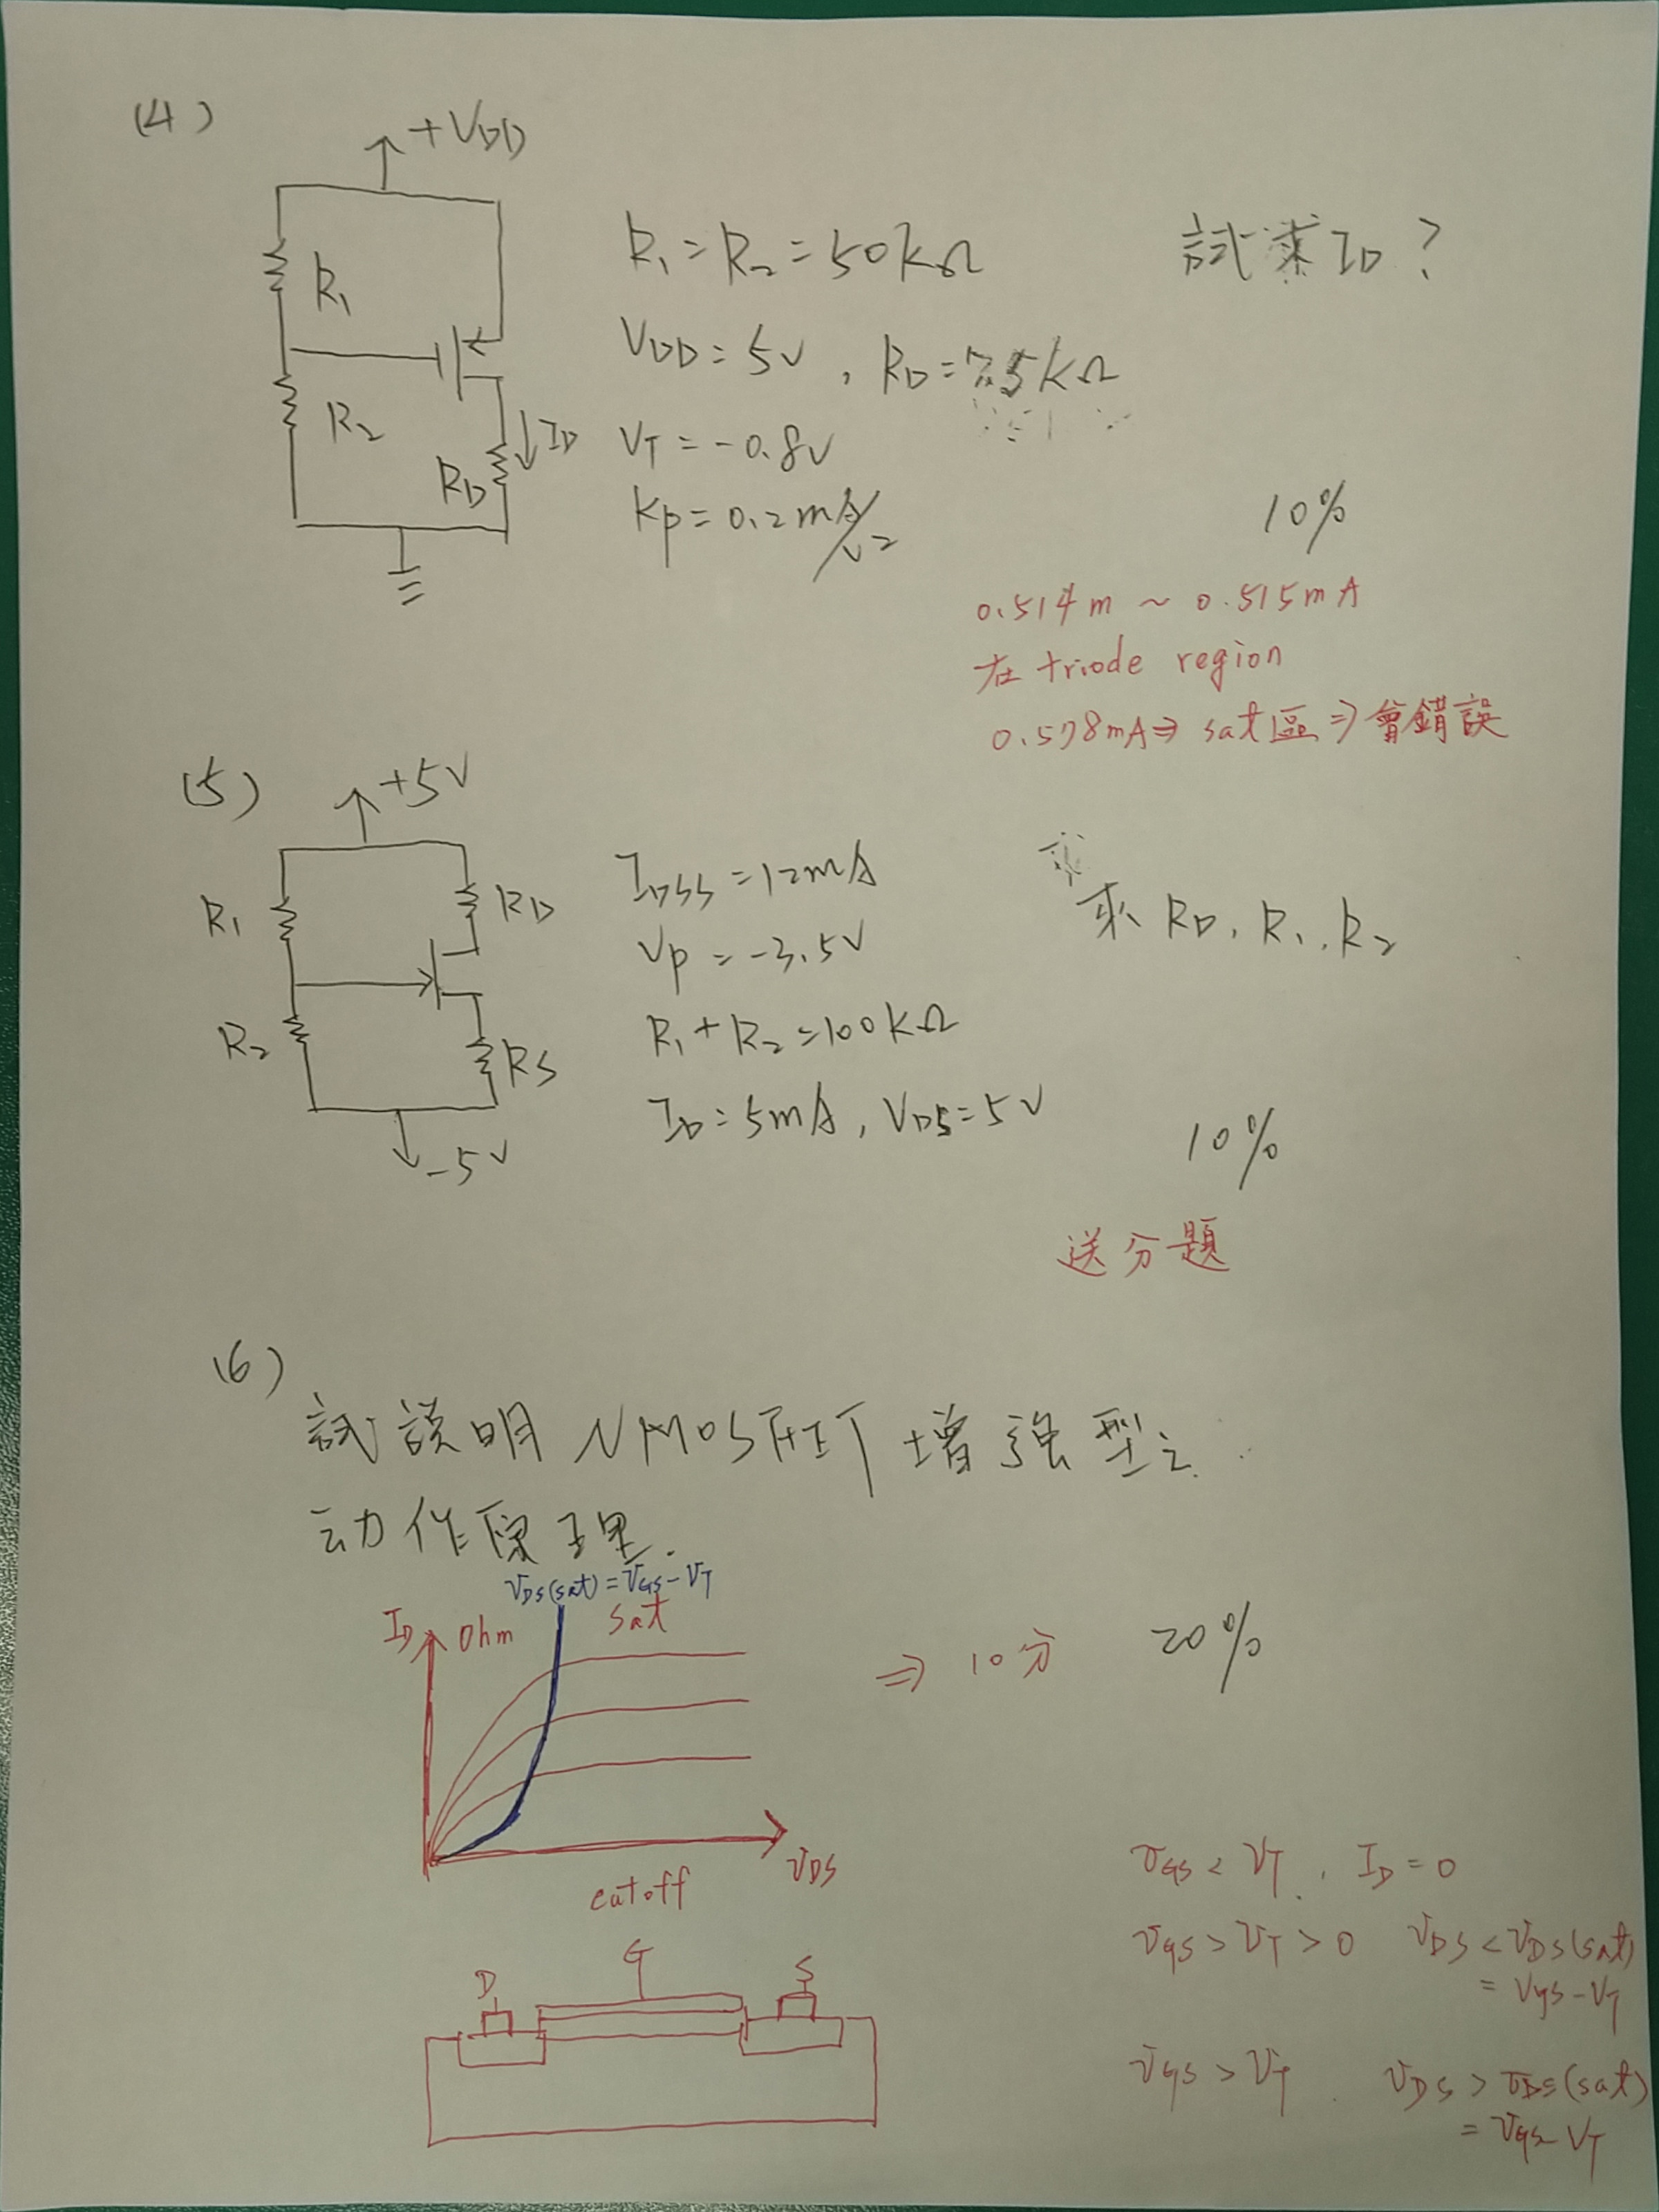 (4)
+VDD
R1
R2
ID
RD
R1=R2=50kΩ
VDD=5V, RD=7.5kΩ
VT=-0.8V
Kp=0.2mA/V2
試求ID?
10%
0.514m~0.515mA
在triode region
0.578mA⇒sat區⇒會錯誤
(5)
+5V
R1
RD
R2
RS
-5V
IDSS=12mA
Vp=-3.5V
R1+R2=100kΩ
ID=5mA, VDS=5V
求RD, R1, R2
10%
送分題
(6)
試說明NMOSFET增強型之
动作原理.
VDS(sat)=VGS-VT
ID
Ohm
sat
⇒10分
20%
VDS
cutoff
D
G
S
VGS<VT, ID=0
VGS>VT>0 VDS<VDS(sat)
=VGS-VT
VGS>VT. VDS>VDS(sat)
=VGS-VT